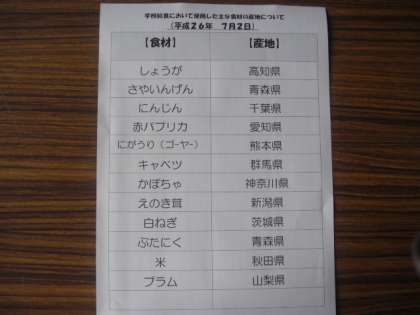 学校給食において使用した主な食材の産地について
（平成26年　7月2日）
【食材】　【産地】
しょうが　高知県
さやいんげん　青森県
にんじん　千葉県
赤パプリカ　愛知県
にがうり（ゴーヤー）　熊本県
キャベツ　群馬県
かぼちゃ　神奈川県
えのき茸　新潟県
白ねぎ　茨城県
ぶたにく　青森県
米　秋田県
プラム　山梨県